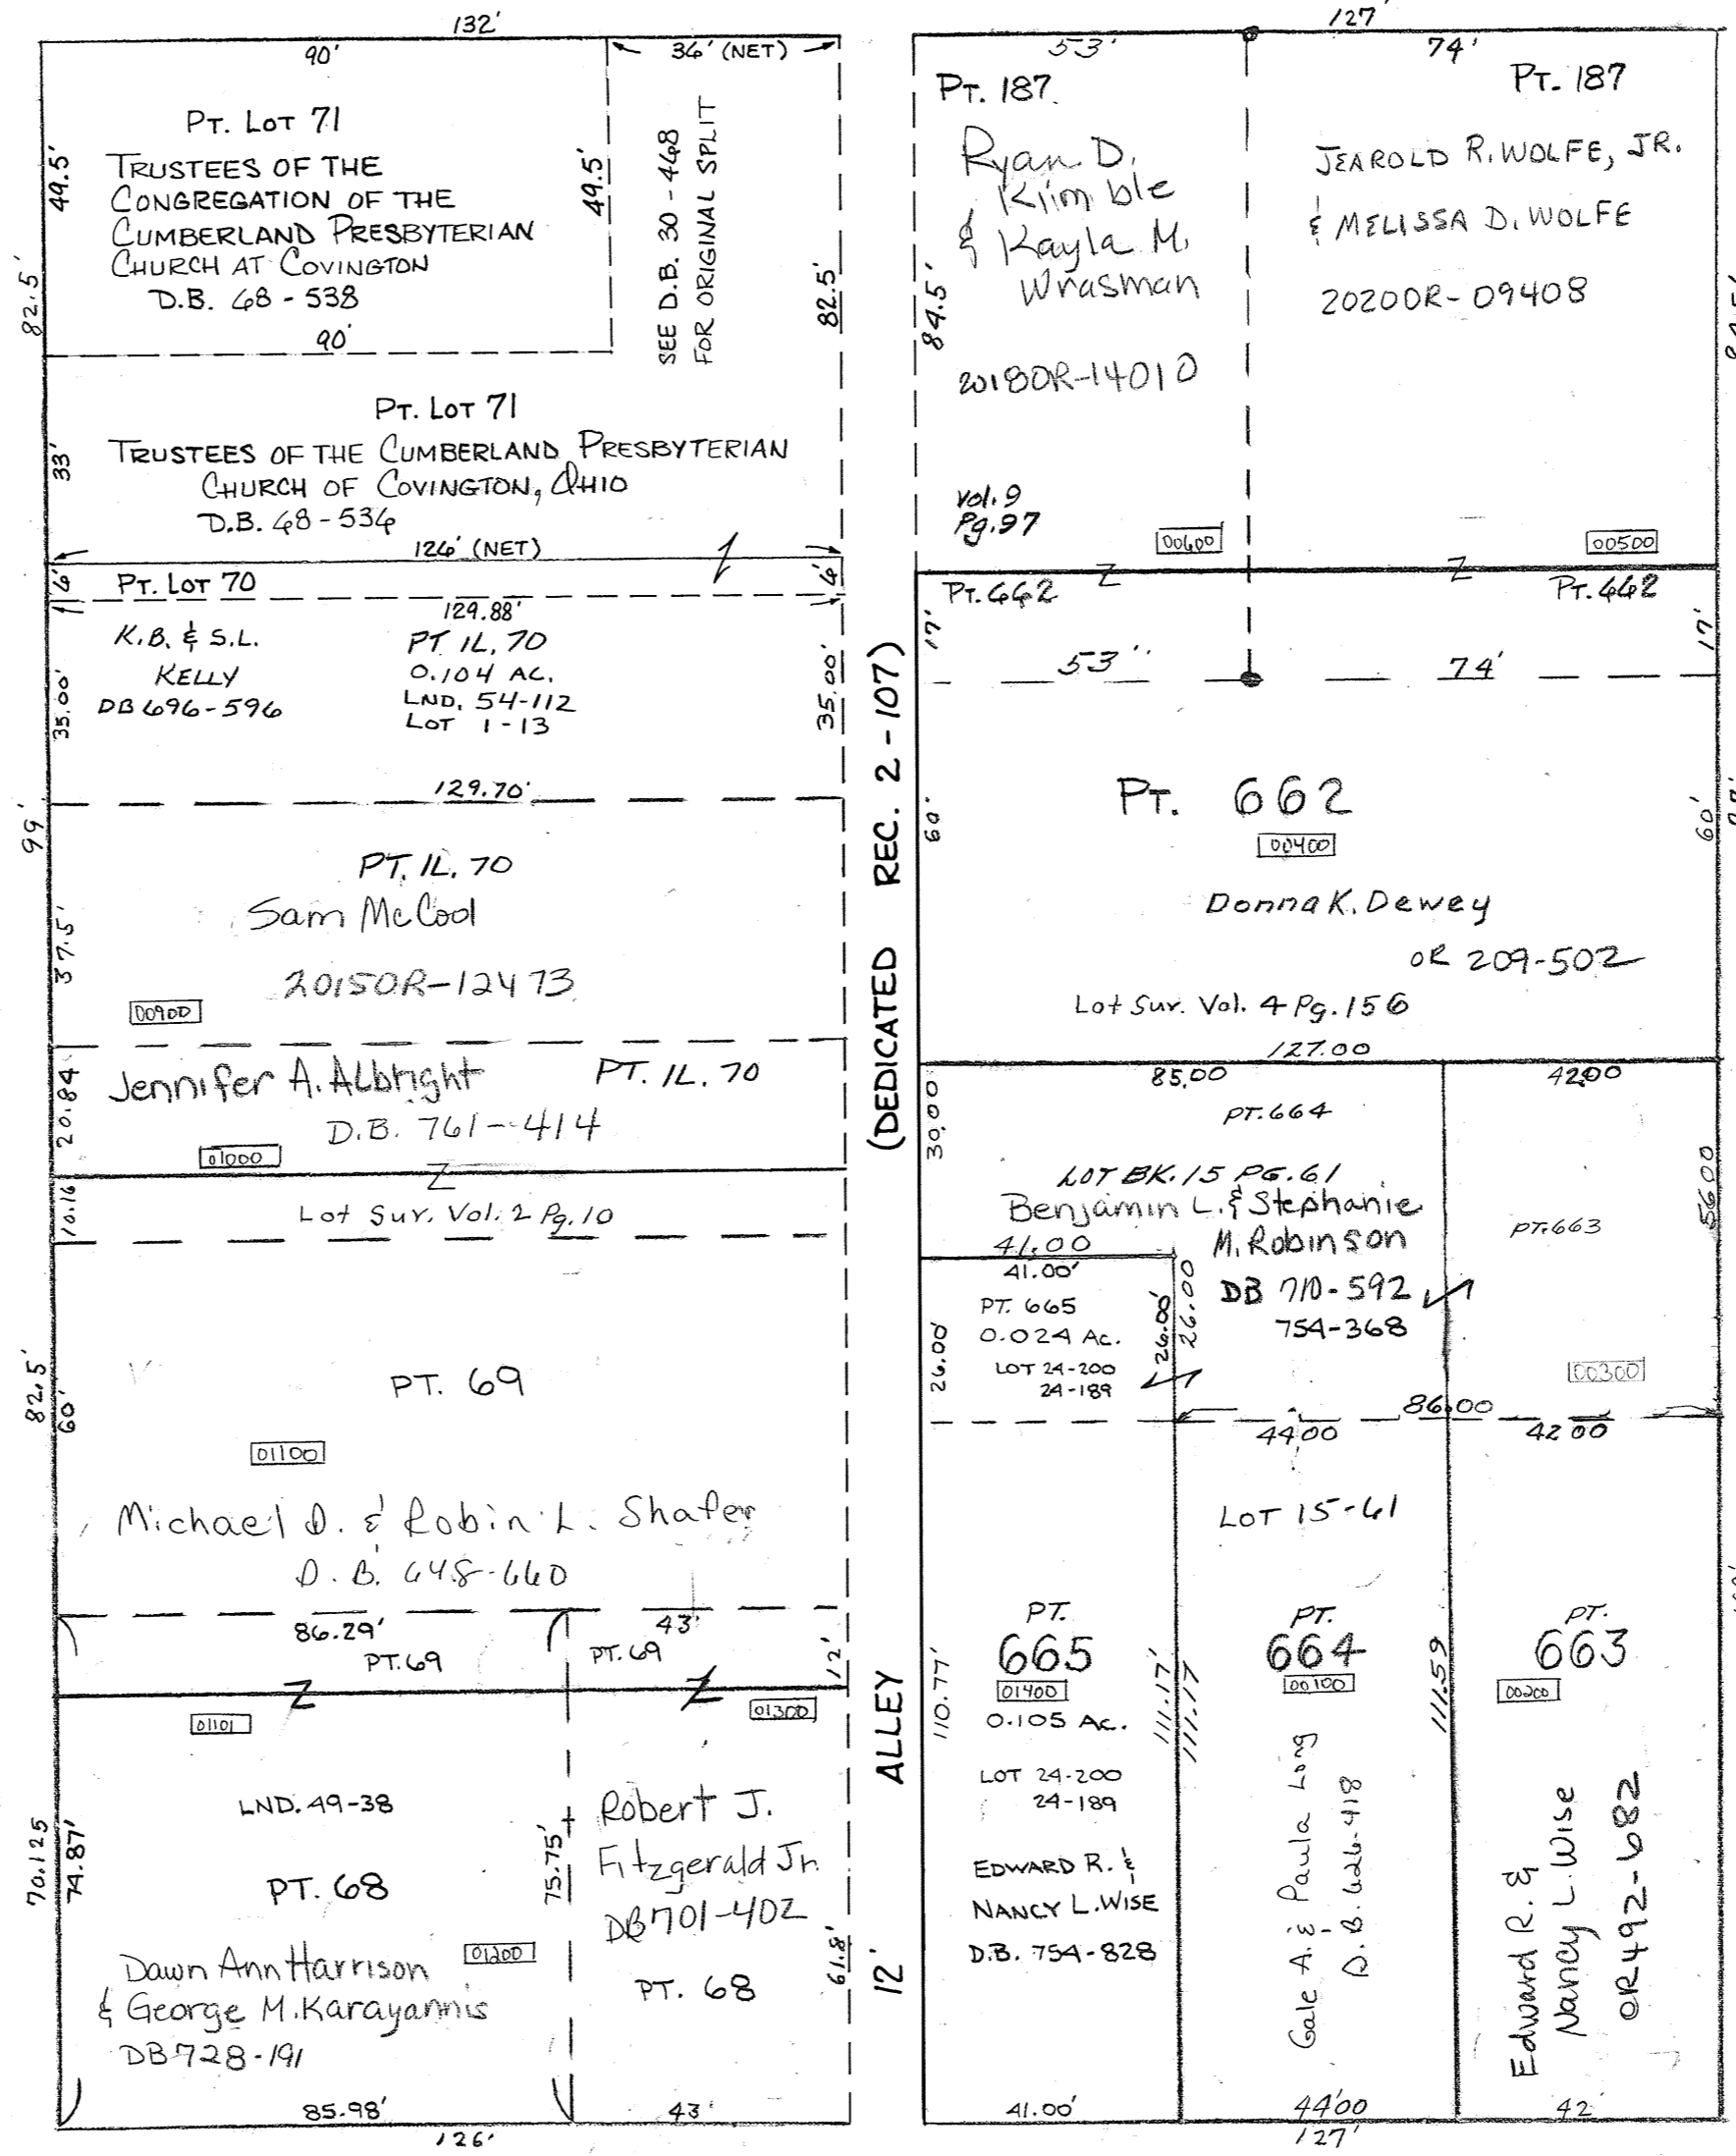 132'
90'
36' (NET)
PT. LOT 71
TRUSTEES OF THE
CONGREGATION OF THE
CUMBERLAND PRESBYTERIAN
CHURCH AT COVINGTON
D.B. 68 - 538
49.5'
49.5'
82.5'
90'
SEE D.B. 30 - 468
FOR ORIGINAL SPLIT
82.5'
PT. LOT 71
TRUSTEES OF THE CUMBERLAND PRESBYTERIAN
CHURCH OF COVINGTON, OHIO
D.B. 68 - 536
33'
126' (NET)
6'
PT. LOT 70
6'
129.88'
K.B. & S.L.
KELLY
DB 696-596
PT IL. 70
0.104 AC.
LND. 54-112
LOT 1-13
35.00'
35.00'
129.70'
99'
PT. IL. 70
Sam McCool
20150R-12473
37.5'
00900
Jennifer A. Albright
PT. IL. 70
D.B. 761-414
20.84
01000
10.16
Lot Sur. Vol. 2 Pg. 10
PT. 69
82.5'
60'
01100
Michael D. & Robin L. Shafer
D.B. 648-660
86.29'
43'
PT. 69
PT. 69
12'
01101
01300
LND. 49-38
PT. 68
70.125
74.87'
75.75'
Dawn Ann Harrison
& George M. Karayannis
DB 728-191
01200
Robert J.
Fitzgerald Jr.
DB 701-402
PT. 68
61.8'
85.98'
43'
126'
12' ALLEY (DEDICATED REC. 2 - 107)
127'
53'
74'
PT. 187
Ryan D.
Kiimble
& Kayla M.
Wrasman
20180R-14010
84.5'
Vol. 9
Pg. 97
00600
PT. 187
JEAROLD R. WOLFE, JR.
& MELISSA D. WOLFE
20200R-09408
00500
PT. 662
PT. 662
17'
17'
53''
74'
PT. 662
00400
60'
60'
Donna K. Dewey
OR 209-502
Lot Sur. Vol. 4 Pg. 156
127.00
85.00
42.00
30.00
PT. 664
LOT BK. 15 PG. 61
Benjamin L. & Stephanie
M. Robinson
DB 710-592
754-368
PT. 663
56.00
00300
41.00
41.00'
PT. 665
0.024 AC.
LOT 24-200
24-189
26.00'
26.00'
26.00
86.00
44.00
42.00
LOT 15-61
PT.
665
01400
0.105 AC.
LOT 24-200
24-189
EDWARD R. &
NANCY L. WISE
D.B. 754-828
110.77'
111.17'
111.17
PT.
664
00100
Gale A. & Paula Long
D.B. 626-418
111.59
PT.
663
00200
Edward R. &
Nancy L. Wise
OR 492-682
41.00'
44.00
42
127'